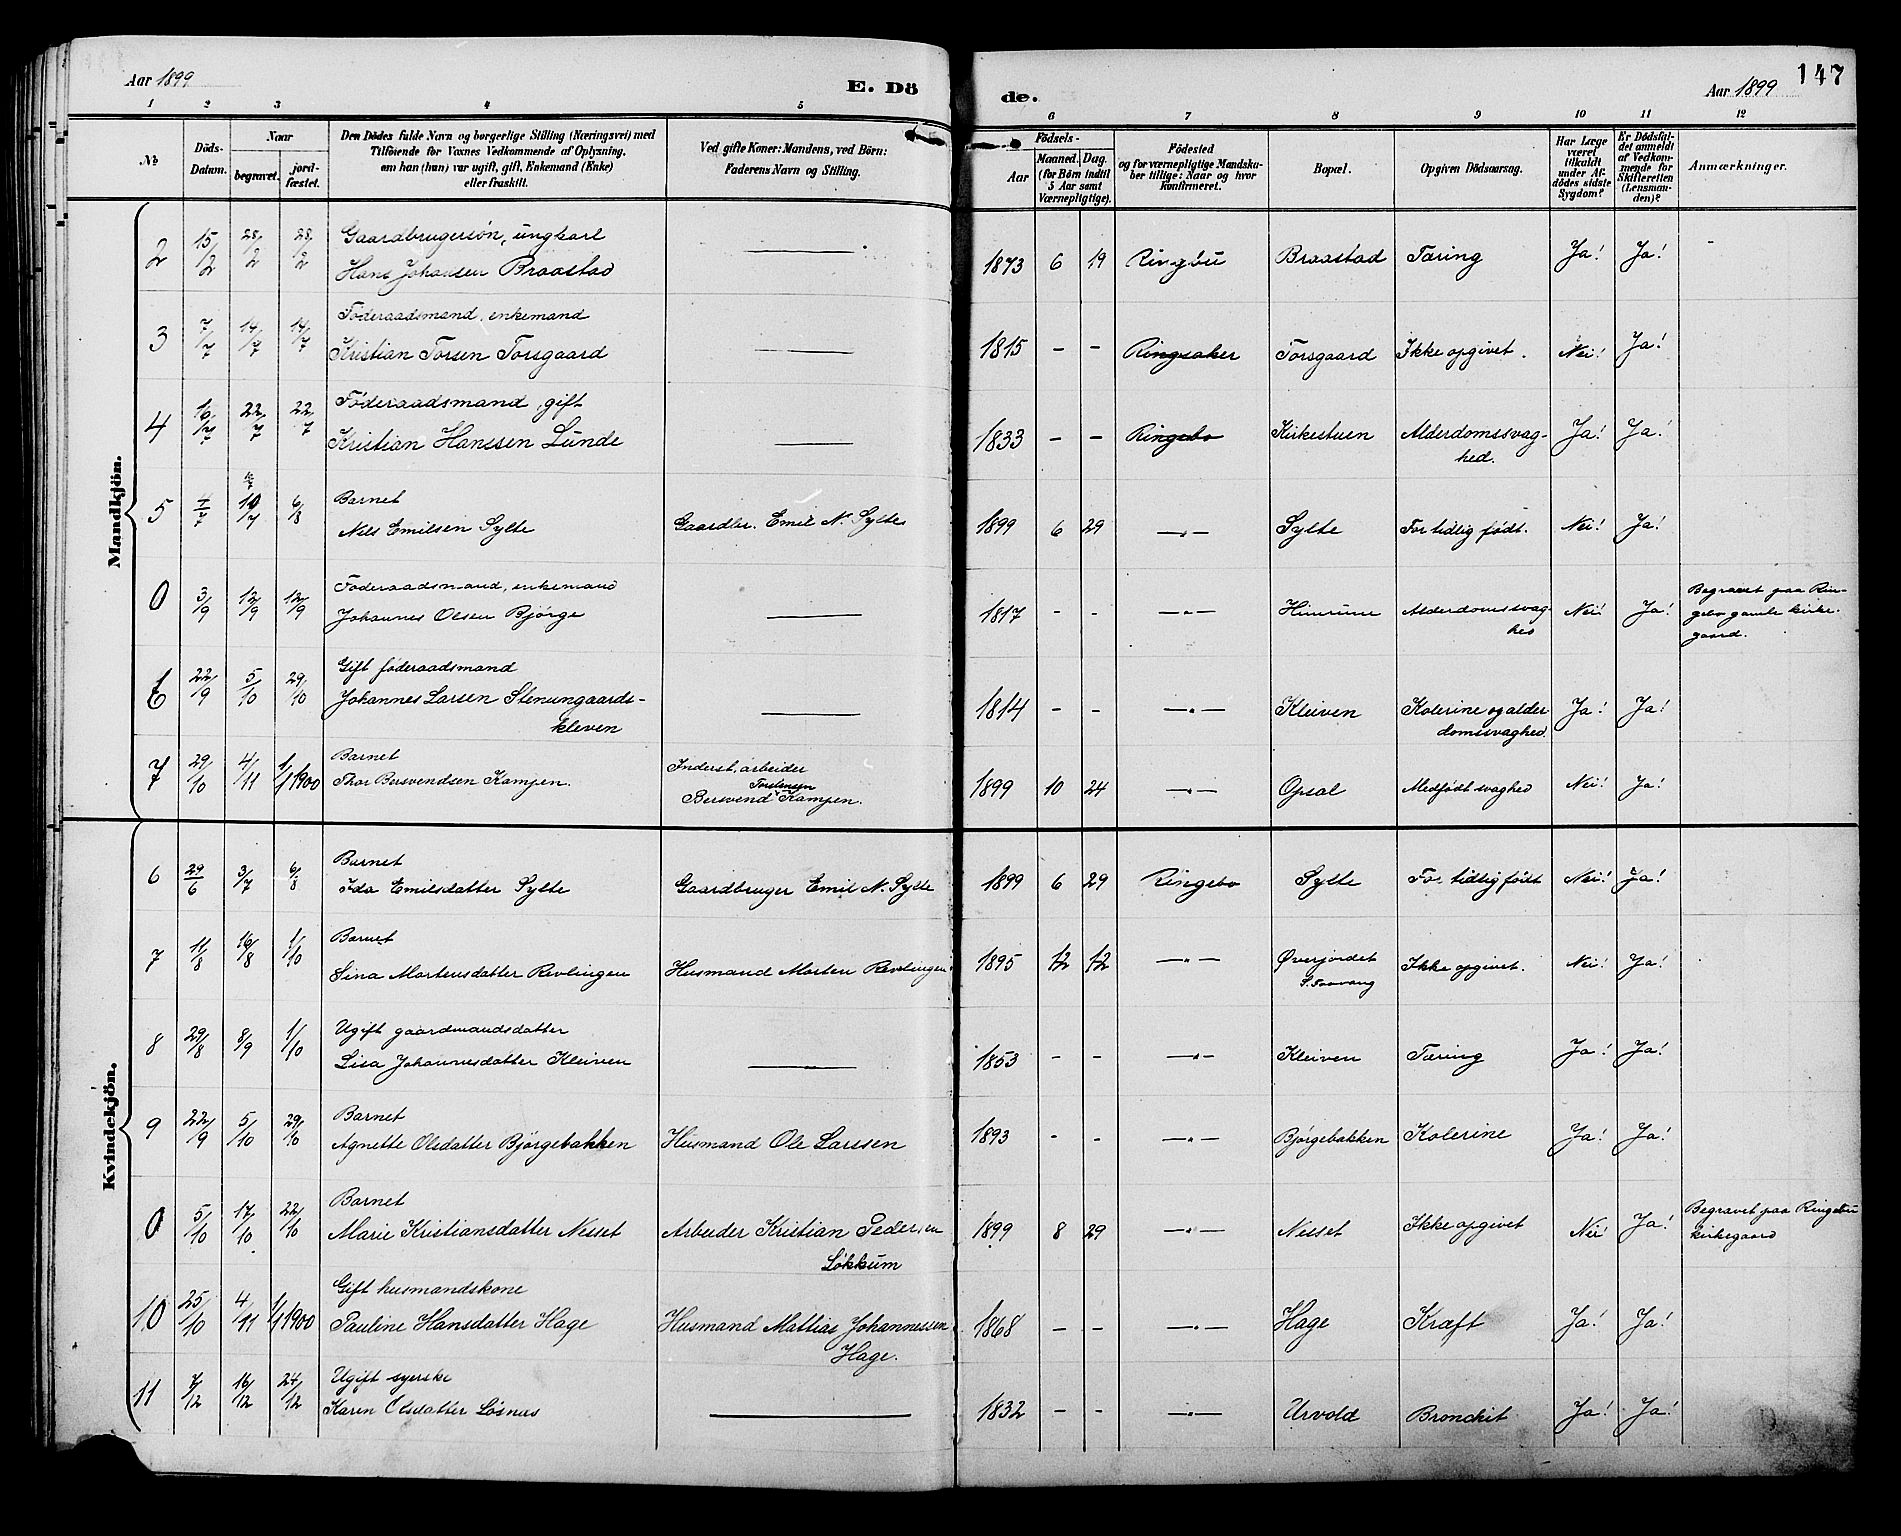 Aar 1899
E. Dö
de.
Aar 1899
147
1 2 3 4 5 6 7 8 9 10 11 12
№
Döds-Datum.
Naar
begravet.
jord-fæstet.
Den Dödes fulde Navn og borgerlige Stilling (Næringsvei) med
Tilföiende för Voxnes Vedkommende af Oplysning,
om han (hun) var ugift, gift, Enkemand (Enke)
eller fraskilt.
Ved gifte Koner: Mandens, ved Börn:
Faderens Navn og Stilling.
Födsels-
Aar
Maaned. Dag.
(for Börn indtil
5 Aar samt
Værnepligtige).
Födested
og for værnepligtige Mandska-
ber tillige: Naar og hvor
konfirmeret.
Bopæl.
Opgiven Dödsaarsag.
Har Læge
været
tilkaldt
under Af-
dödes sidste
Sygdom?
Er Dödsfal-
det anmeldt
af Vedkom-
mende for
Skifteretten
(Lensman-
den)?
Anmærkninger.
Mandkjön.
2 15/2 28/2 28/2 Gaardbrugersön, ungkarl
Hans Johansen Braastad 1873 6 19 Ringebu Braastad Tæring Ja! Ja!
3 7/7 14/7 14/7 Föderaadsmand, enkemand
Kristian Torsen Torsgaard 1815 – – Ringsaker Torsgaard Ikke opgivet. Nei! Ja!
4 16/7 22/7 22/7 Föderaadsmand, gift
Kristian Hanssen Lunde 1833 – – Ringebo Kirkestuen Alderdomssvag-
hed. Ja! Ja!
5 7/7 10/7 6/8 Barnet
Nils Emilsen Sylte Gaardbr. Emil N. Sylte 1899 6 29 –"– Sylte For tidlig født. Nei! Ja!
0 3/9 12/9 12/9 Föderaadsmand, enkemand
Johannes Olsen Bjørge 1817 – – –"– Alderdomssvag-
hed Nei! Ja! Begravet paa Rin-
gebo gamle kirke-
gaard.
6 22/9 5/10 29/10 Gift föderaadsmand
Johannes Larsen Stenumgaards-
kleven 1814 – – –"– Kleiven Kolerine og alder
domssvaghed Ja! Ja!
7 29/10 4/11 1/1 1900 Barnet
Thor Bersvendsen Kampen. Inderst, arbeider
Torstensen
Bersvend Kampen. 1899 10 24 –"– Opsal Medfødt svaghed Nei! Ja!
Kvindekjön.
6 29/6 3/7 6/8 Barnet
Ida Emilsdatter Sylte Gaardbruger Emil N. Sylte 1899 6 29 Ringebo Sylte For tidlig født Nei! Ja!
7 11/8 16/8 1/10 Barnet
Sina Martensdatter Revlingen Husmand Morten Revlingen 1895 12 12 –"– Øverjordet
S. Faavang Ikke opgivet. Nei! Ja!
8 29/8 8/9 1/10 Ugift gaardmandsdatter
Lisa Johannesdatter Kleiven 1853 – – –"– Kleiven Tæring Ja! Ja!
9 22/9 5/10 29/10 Barnet
Agnette Olsdatter Bjørgebakken Husmand Ole Larssen 1893 – – –"– Bjørgebakken Kolerine Ja! Ja!
0 5/10 17/10 22/10 Barnet
Marie Kristiansdatter Nesset Arbeider Kristian Pedersen
Løkkum 1899 8 29 –"– Nesset Ikke opgivet Nei Ja! Begravet paa Ringebu
kirkegaard
10 25/10 4/11 1/1 1900 Gift husmandskone
Pauline Hansdatter Hage Husmand Mattias Johannessen
Hage. 1868 – – –"– Hage Kræft Ja! Ja!
11 7/12 16/12 24/12 Ugift syerske
Karen Olsdatter Løsnas 1832 – – –"– Urvold Bronchit Ja! Ja!